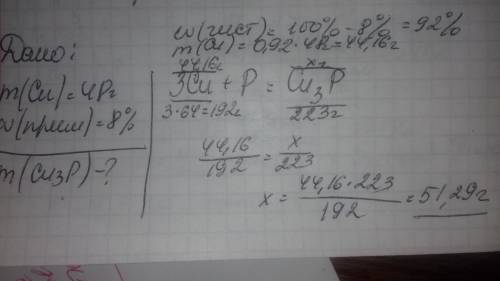 Дано:
m(Cu)=48г
ω(прим)=8%
m(Cu₃P)-?
ω(чист)=100%-8%=92%
m(Cu)=0,92·48г=44,16г
44,16г xг
3Cu + P = Cu₃P
3·64=192г 223г
44,16/192 = x/223
x = 44,16·223/192 = 51,29г